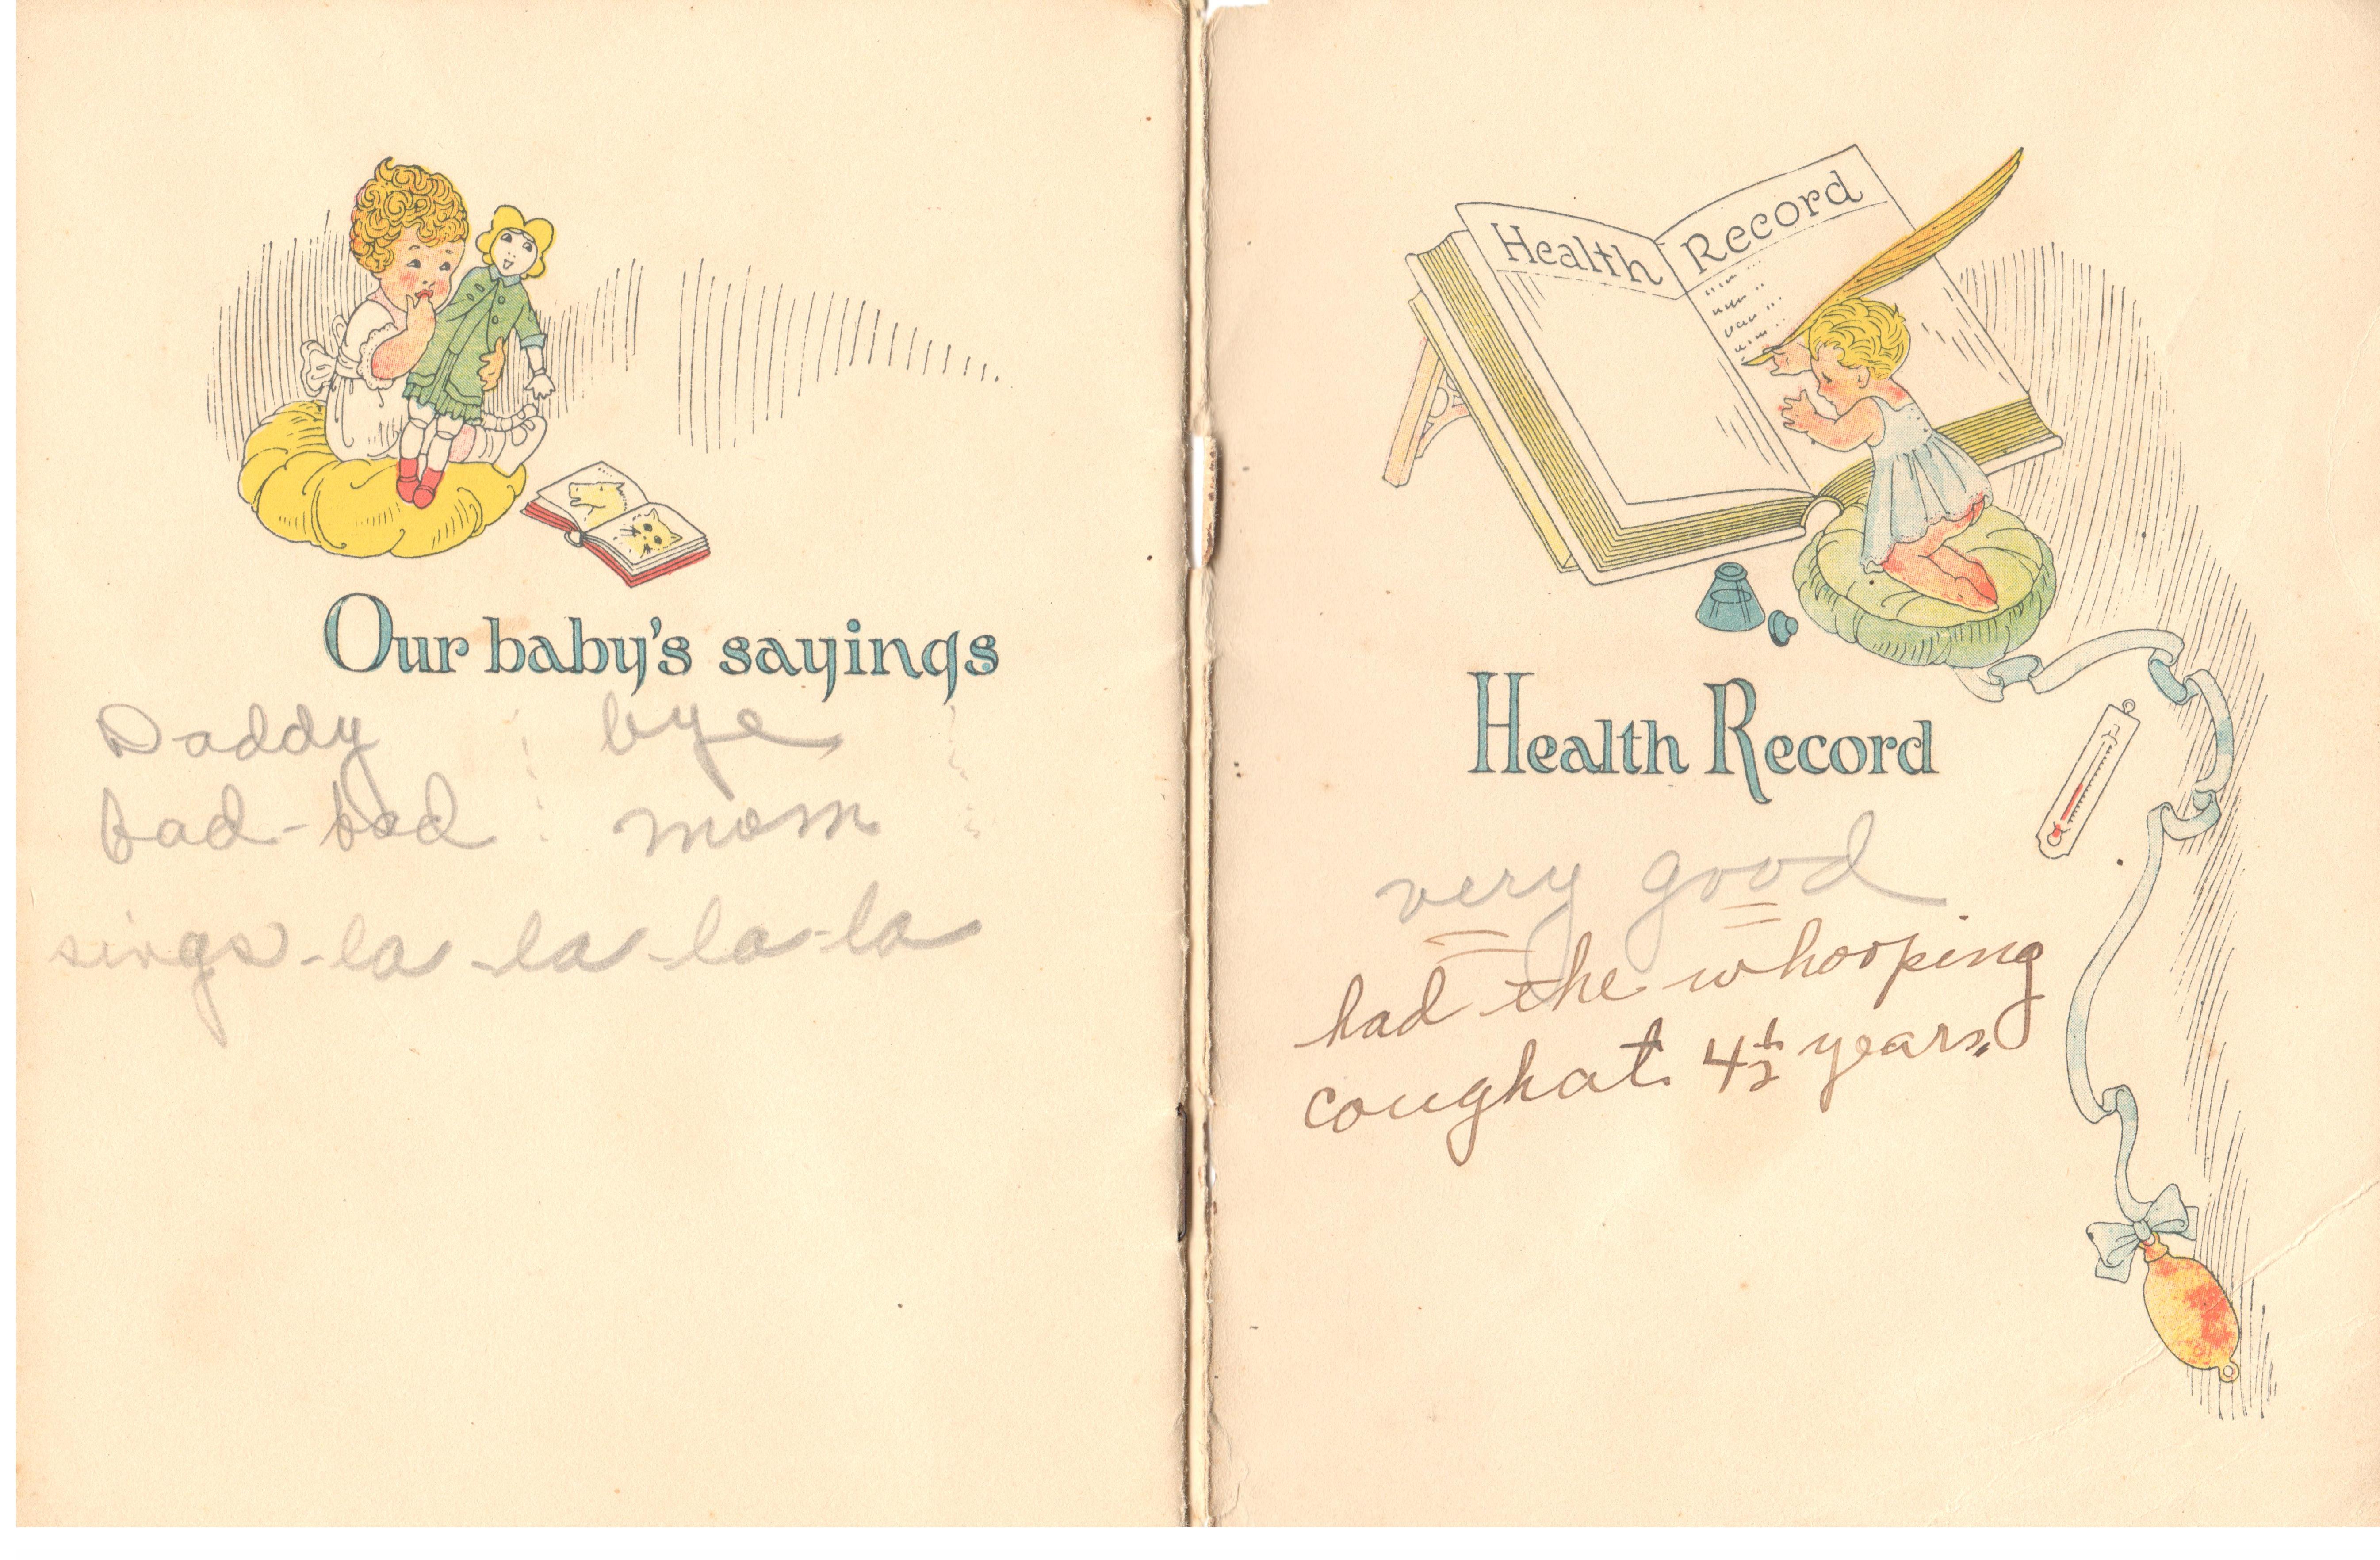 Our baby's sayings
Daddy bye
bad-bad mom
sings-la-la-la-la
Health Record
Health Record
very good
had the whooping
coughat 4½ years.